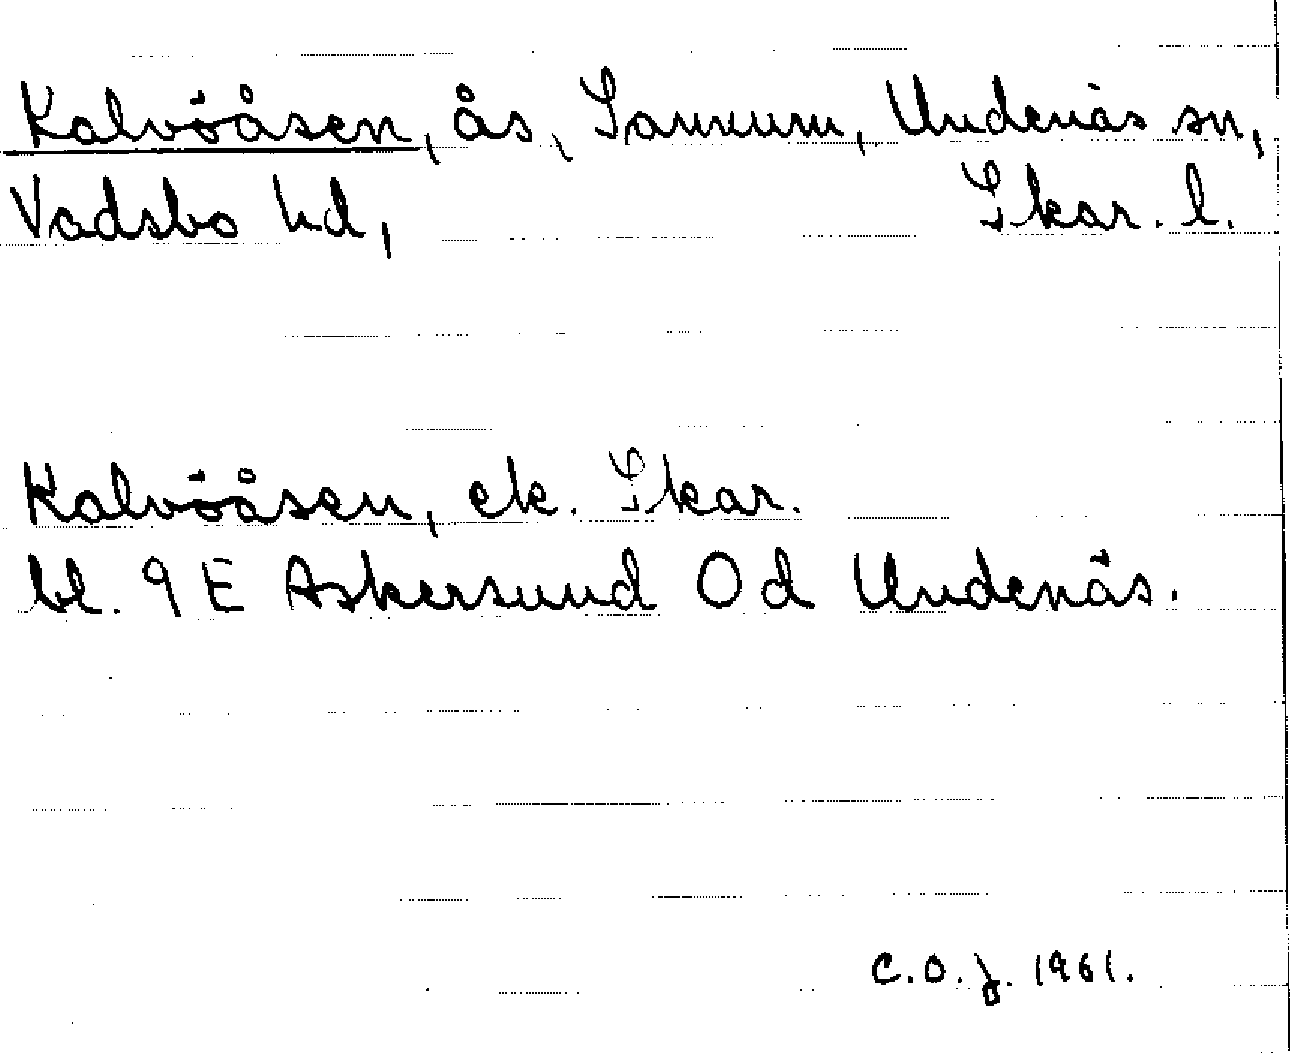 Kalvöåsen, ås, Sannum, Undenäs sn,
Vadsbo hd, Skar. l.
Kalvöåsen, ek. Skar.
bl. 9 E Askersund 0 d Undenäs.
C.O.J. 1961.